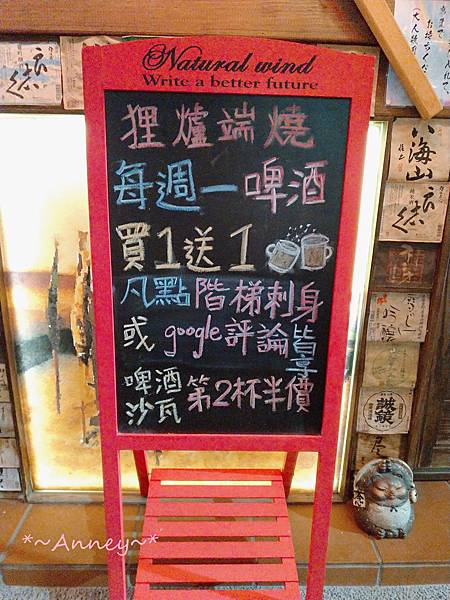 Natural wind
Write a better future
狸爐端燒
每週一啤酒
買1送1
凡點階梯刺身
或google評論皆享
啤酒
沙瓦第2杯半價
八海山
誠鏡
*~Anney~*